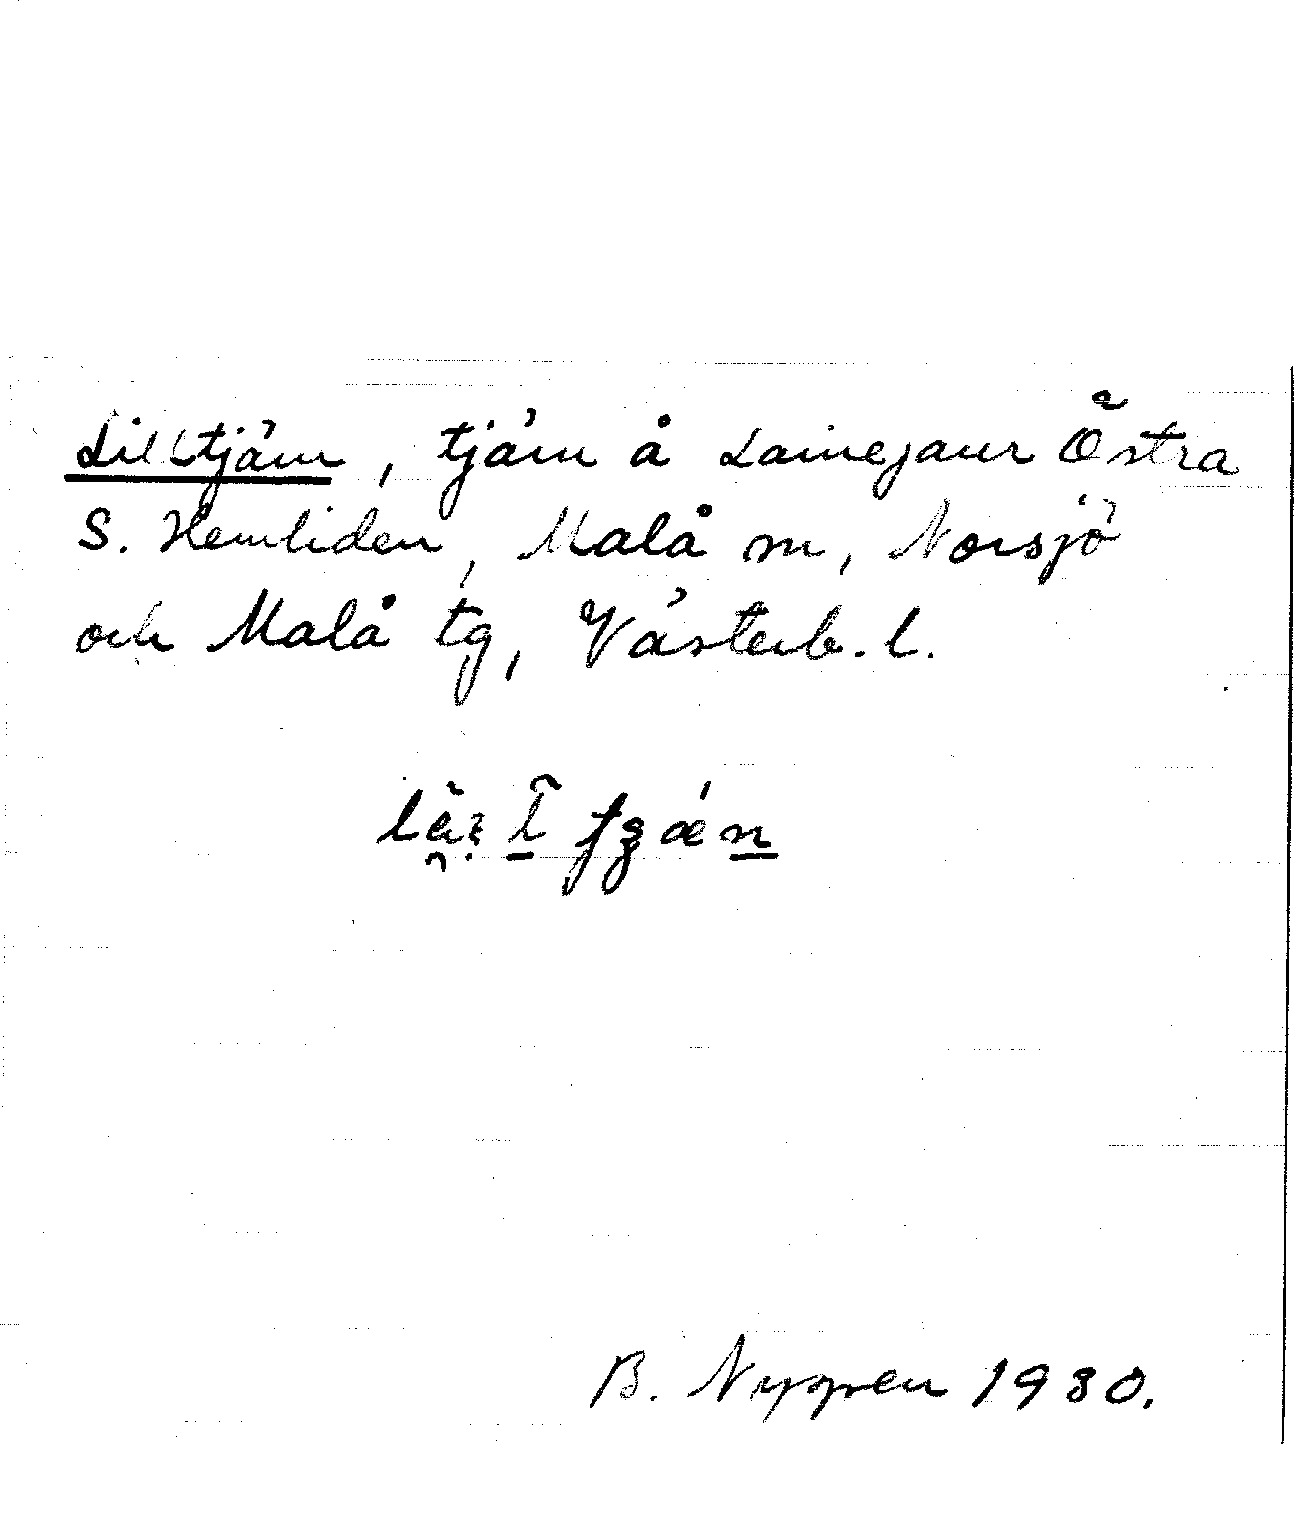 Lilltjärn, tjärn å Lainejaur Östra
S. Hemliden, Malå sn, Norsjö
och Malå tg, Västerb. l.
B. Nyppen 1980.